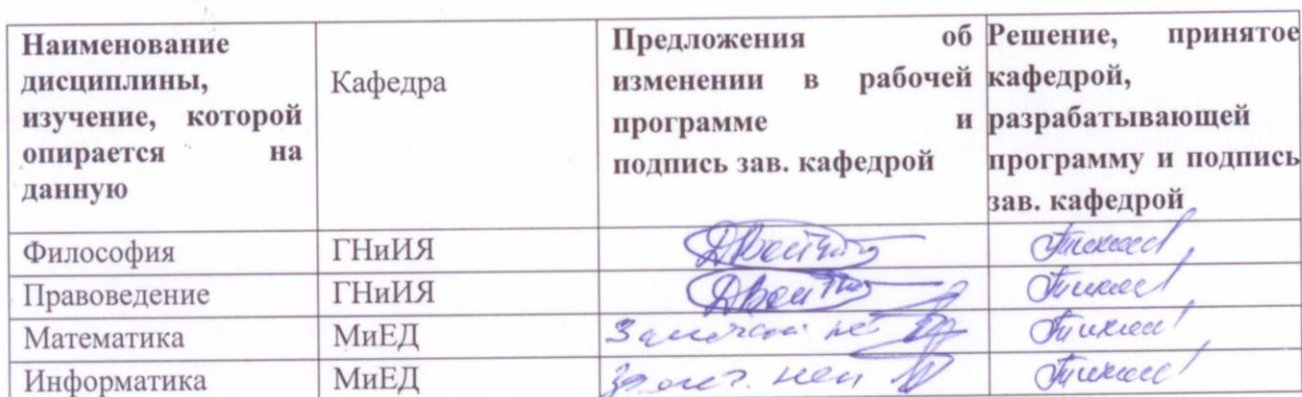 Наименование
дисциплины,
изучение, которой
опирается на
данную
Кафедра
Предложения об
изменении в рабочей
программе и
подпись зав. кафедрой
Решение, принятое
кафедрой,
разрабатывающей
программу и подпись
зав. кафедрой
Философия ГНиИЯ
Правоведение ГНиИЯ
Математика МиЕД
Информатика МиЕД